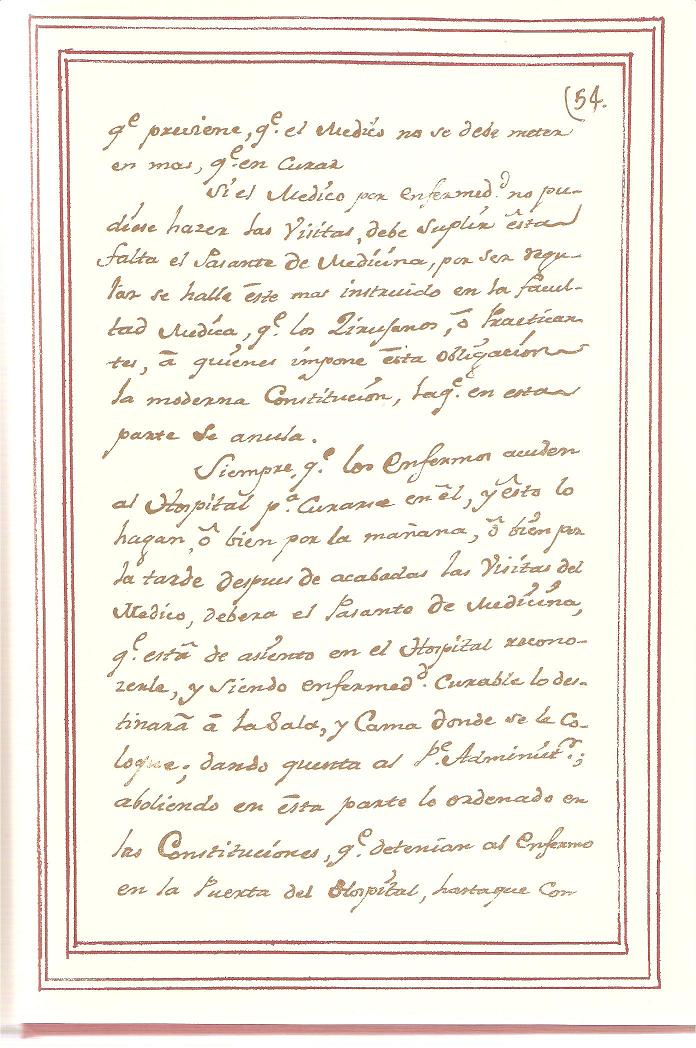 (54.
qᵉ previene, qᵉ. el Medico no se debe meter
en mas, qᵉ. en Curar
Si el Medico por enfermed.ᵈ no pu-
diese hazer las Visitas, debe suplir ēsta
falta el Pasante de Medicina, por ser regu-
lar se halle ēste mas instruido en la facul-
tad Medica, qᵉ. los Zirujanos, ō Practican-
tes, ā quienes impone ēsta obligacion
la moderna Constitucion, laqᵉ. en esta
parte se anula.
Siempre, qᵉ. los Enfermos acuden
al Hospital pᵃ. Curarse en ēl, y ēsto lo
hagan, ō bien por la mañana, ō bien por
la tarde despues de acabadas las Visitas del
Medico, debera el Pasante de Medicina,
qᵉ. estā de asiento en el Hospital recono-
zerle, y siendo enfermed.ᵈ Curable lo des-
tinarā ā la Sala, y Cama donde se le Co-
loque; dando quenta al Pᵉ. Administᵒʳ.;
aboliendo en ēsta parte lo ordenado en
las Constituciones, qᵉ. detenian al Enfermo
en la Puerta del Hospital, hastaque Con